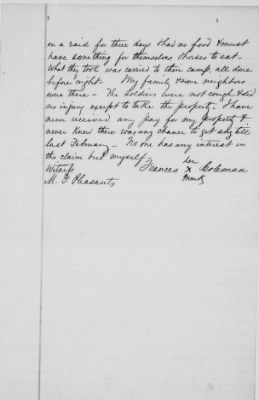 on a raid for three days & had no food & must
have something for themselves & horses to eat -
What they took was carried to their camp, all done
before night - My family & some neighbors
were there - The soldiers were not rough & did
no injury except to take the property - I have
never received any pay for my property &
never knew there was any chance to get any till
last February - No one has any interest in
the claim but myself
her
Witness Frances X Coleman
M. F. Pleasants mark